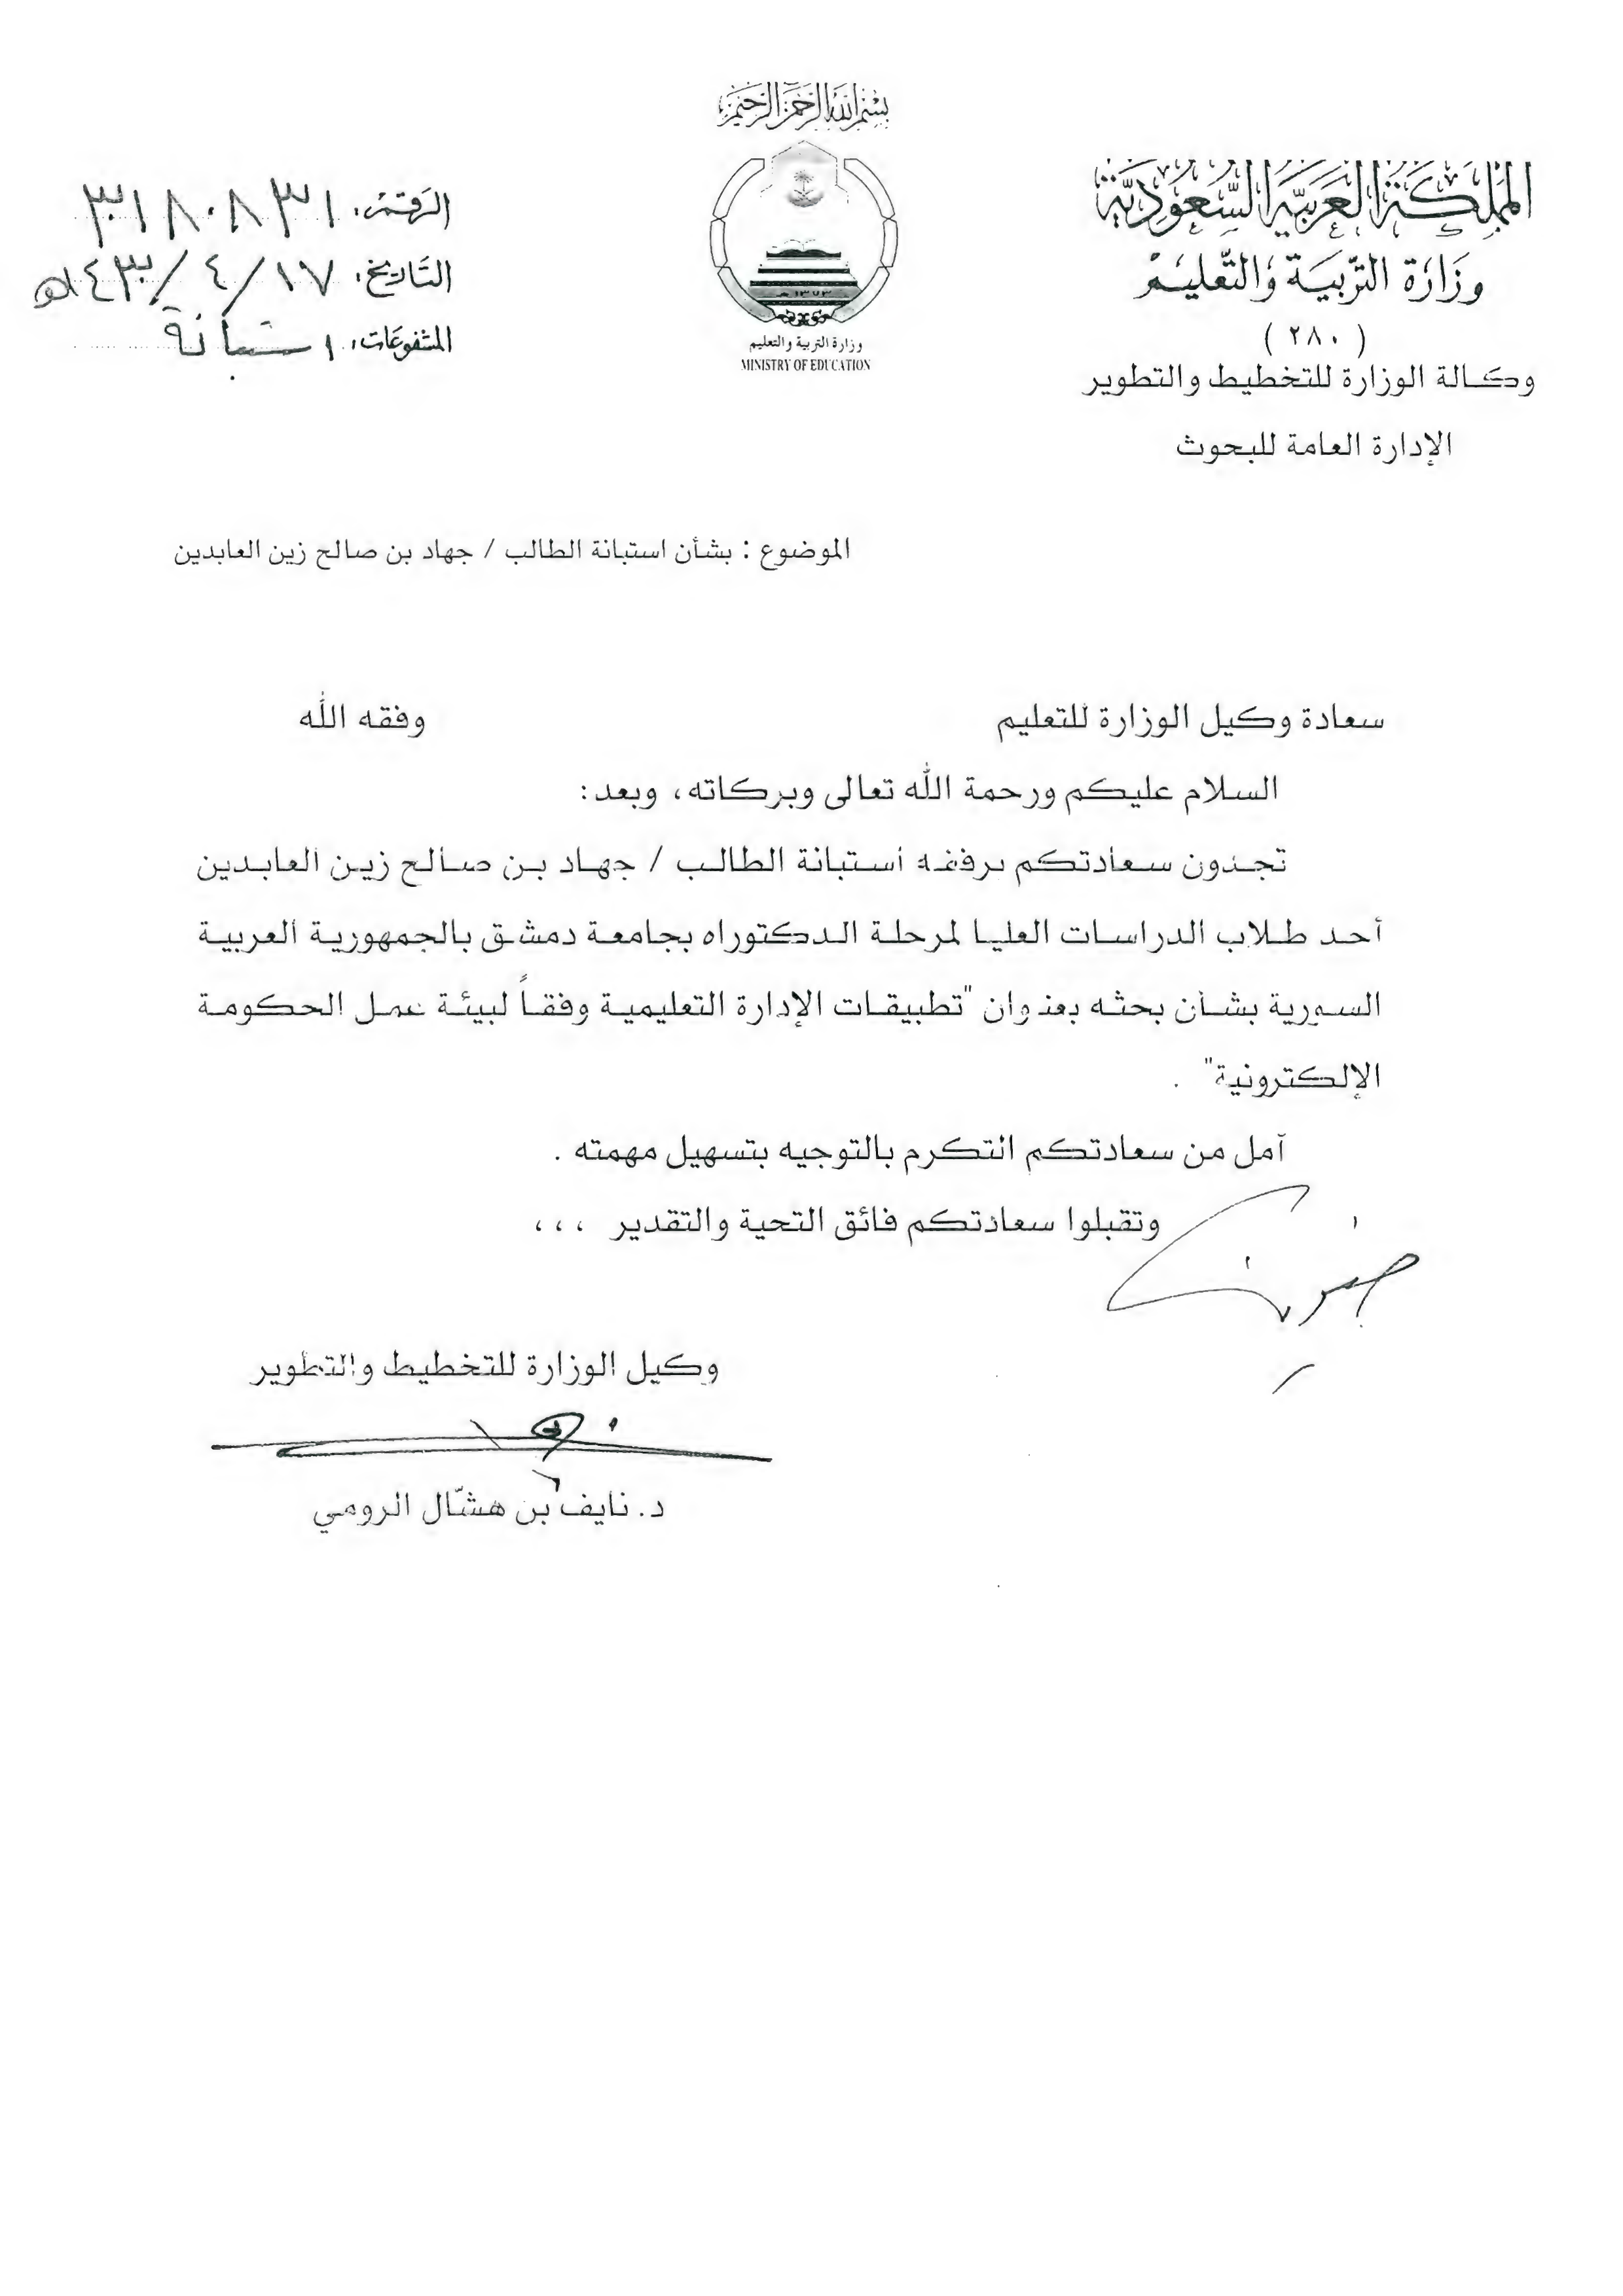 بسم الله الرحمن الرحيم
المملكة العربية السعودية
وزارة التربية والتعليم
( ٢٨٠ )
وكالة الوزارة للتخطيط والتطوير
الإدارة العامة للبحوث
وزارة التربية والتعليم
MINISTRY OF EDUCATION
الرقم: ٣١٨٠٨٣١
التاريخ: ١٧ / ٤ / ١٤٣هـ
المشفوعات: استبانة
الموضوع : بشأن استبانة الطالب / جهاد بن صالح زين العابدين
سعادة وكيل الوزارة للتعليم وفقه الله
السلام عليكم ورحمة الله تعالى وبركاته، وبعد:
تجدون سعادتكم برفقه استبانة الطالب / جهاد بن صالح زين العابدين
أحد طلاب الدراسات العليا لمرحلة الدكتوراه بجامعة دمشق بالجمهورية العربية
السورية بشأن بحثه بعنوان "تطبيقات الإدارة التعليمية وفقاً لبيئة عمل الحكومة
الإلكترونية" .
آمل من سعادتكم التكرم بالتوجيه بتسهيل مهمته .
وتقبلوا سعادتكم فائق التحية والتقدير ،،،
وكيل الوزارة للتخطيط والتطوير
د. نايف بن هشّال الرومي